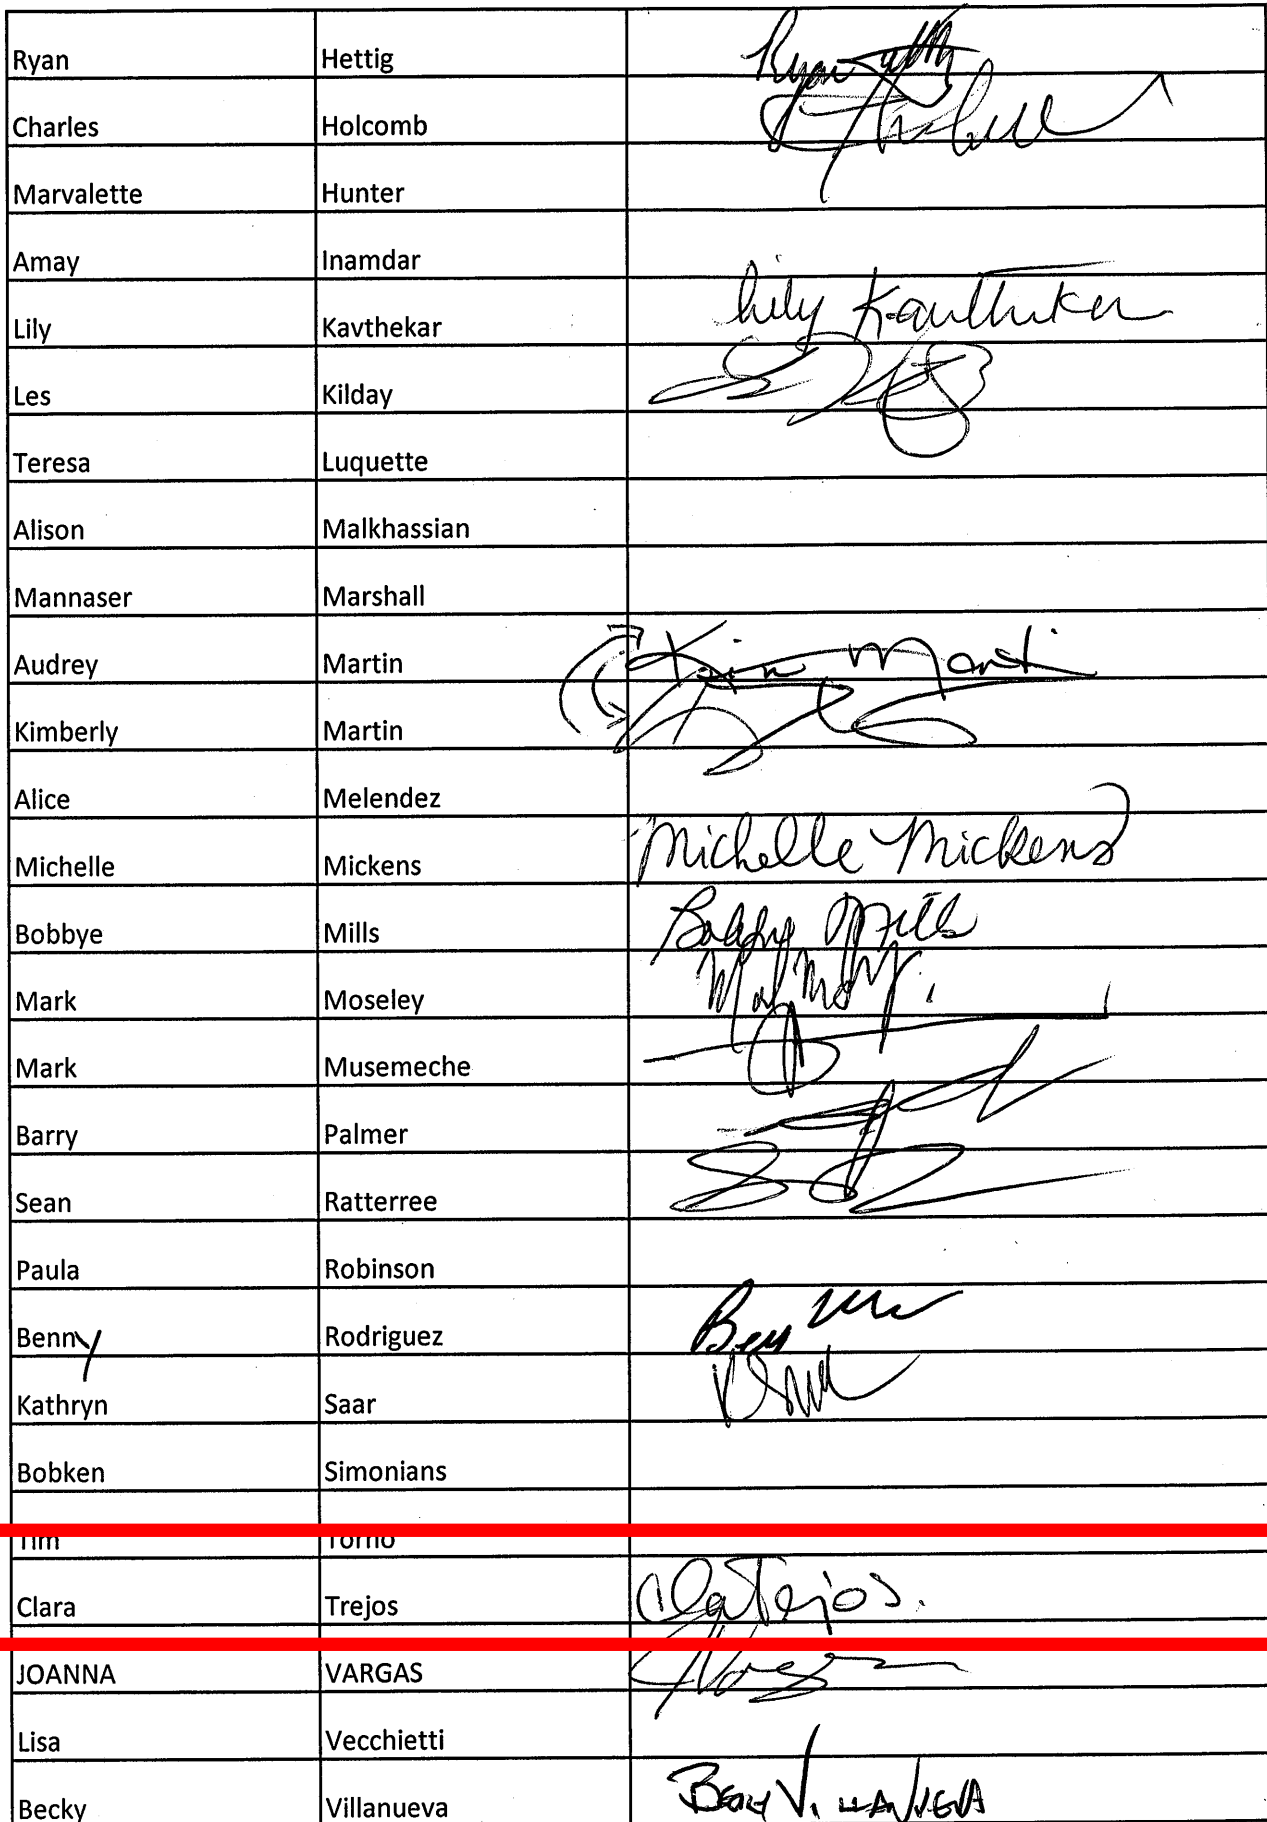 Ryan Hettig Ryan
Charles Holcomb
Marvalette Hunter
Amay Inamdar
Lily Kavthekar Lily Kavthekar
Les Kilday
Teresa Luquette
Alison Malkhassian
Mannaser Marshall
Audrey Martin Kim Martin
Kimberly Martin
Alice Melendez
Michelle Mickens Michelle Mickens
Bobbye Mills Bobbye Mills
Mark Moseley
Mark Musemeche
Barry Palmer
Sean Ratterree
Paula Robinson
Benny Rodriguez
Kathryn Saar
Bobken Simonians
Tim Torno
Clara Trejos
JOANNA VARGAS
Lisa Vecchietti
Becky Villanueva BECKY VILLANUEVA